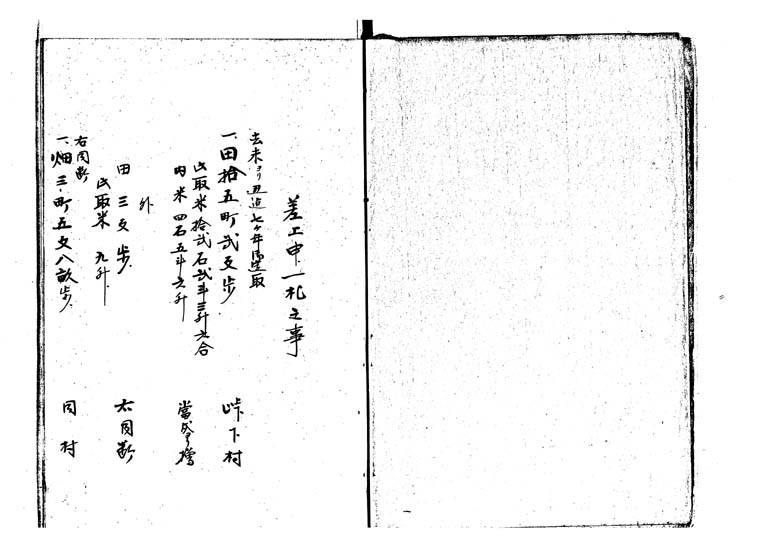 差上申一札之事
去未ヨリ丑迄七ヶ年定取
一、田拾五町弐反歩 峠下村
此取米拾弐石弐斗三升六合
内米四石五斗六升 當発增
外
田三反歩 右同断
此取米九升
右同断
一、畑三町五反八畝歩 同村